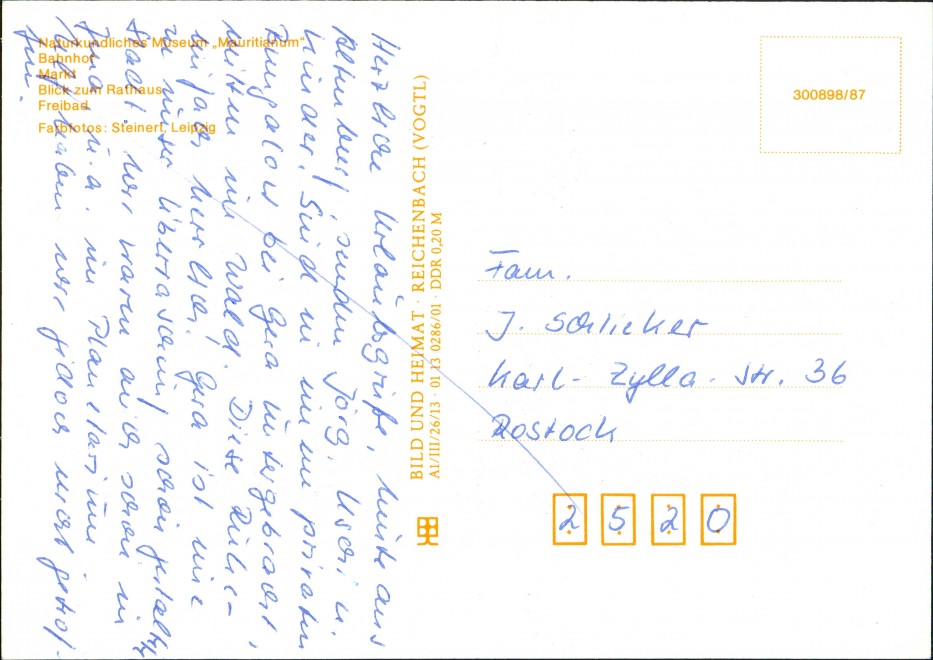 Naturkundliches Museum „Mauritianum"
Bahnhof
Markt
Blick zum Rathaus
Freibad
Farbfotos: Steinert, Leipzig
Herzliche Urlaubsgrüße, heute aus
Altenburg senden Jörg, Uschi u.
Kinder. Sind in einem privaten
Bungalow bei Gera untergebracht,
mitten im Wald. Diese Ruhe -
einfach herrlich! Gera ist eine
zu unserer Überraschung schön gestaltete
Stadt. Wir waren auch schon in
Jena u.a. im Planetarium
haben wir jedoch nicht getrof-
fen.
BILD UND HEIMAT · REICHENBACH (VOGTL)
A1/III/26/13 · 01 13 0286/01 · DDR 0,20 M
300898/87
Fam.
J. Schlicker
Karl-Zylla-Str. 36
Rostock
2520